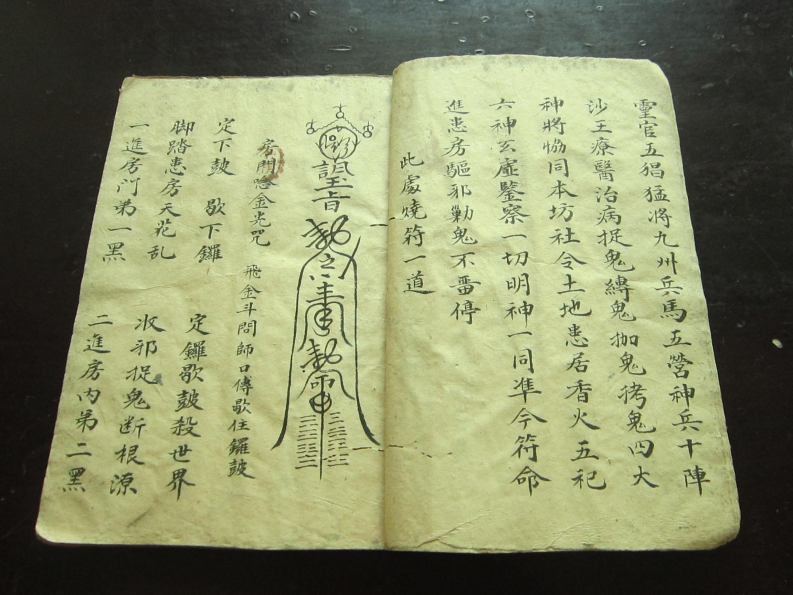 靈官五猖猛將九州兵馬五營神兵十陣
沙王療醫治病捉鬼縛鬼枷鬼拷鬼四大
神將恊同本坊社令土地患居香火五祀
六神玄虛鑒察一切明神一同準今符命
進患房驅邪勦鬼不畱停
此處燒符一道
房門念金光咒
飛金斗問師口傳歇住鑼鼓
定下鼓 歇下鑼 定鑼歇鼓殺世界
脚踏患房天荒乱 收邪捉鬼断根源
一進房门第一黑 二進房内第二黑